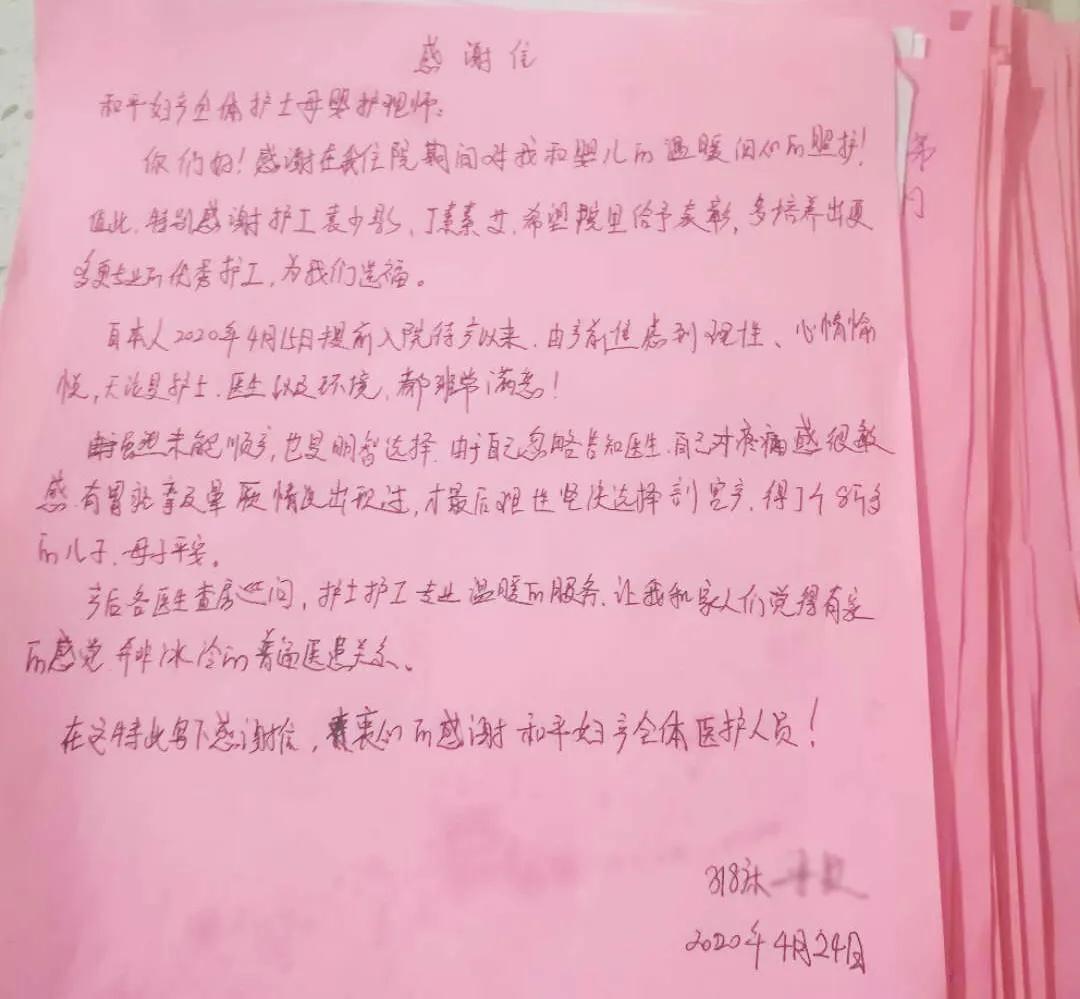 感谢信
和平妇产全体护士母婴护理师:
你们好!感谢在我住院期间对我和婴儿的温暖细心的照护!
值此,特别感谢护工袁少彩、丁素英,希望院里给予表彰,多培养出更
多更专业的优秀护工,为我们造福。
自本人2020年4月15日提前入院待产以来,由产前焦虑到理性、心情愉
悦,无论是护士、医生以及环境,都非常满意!
虽然未能顺产,也是明智选择,由于自己忽略告知医生,自己对疼痛感很敏
感,有胃痉挛及晕厥情况出现过,才最后理性坚决选择剖宫产,得了个8斤多
的儿子,母子平安。
产后各医生查房巡问,护士护工专业温暖的服务,让我和家人们觉得有家
的感觉,并非冰冷的普通医患关系。
在这特此写下感谢信,衷心的感谢和平妇产全体医护人员!
318床
2020年4月24日
第